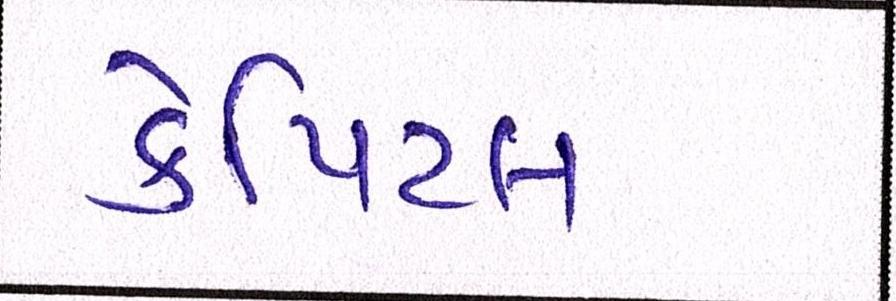 કેપિટલ